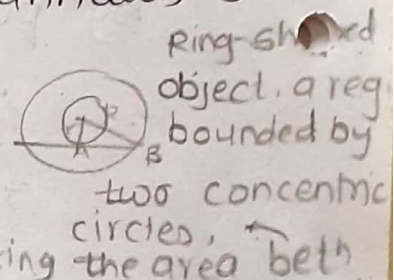 Ring-sh
object. a reg
bounded by
A
B
two concentric
circles,
ing the area betn